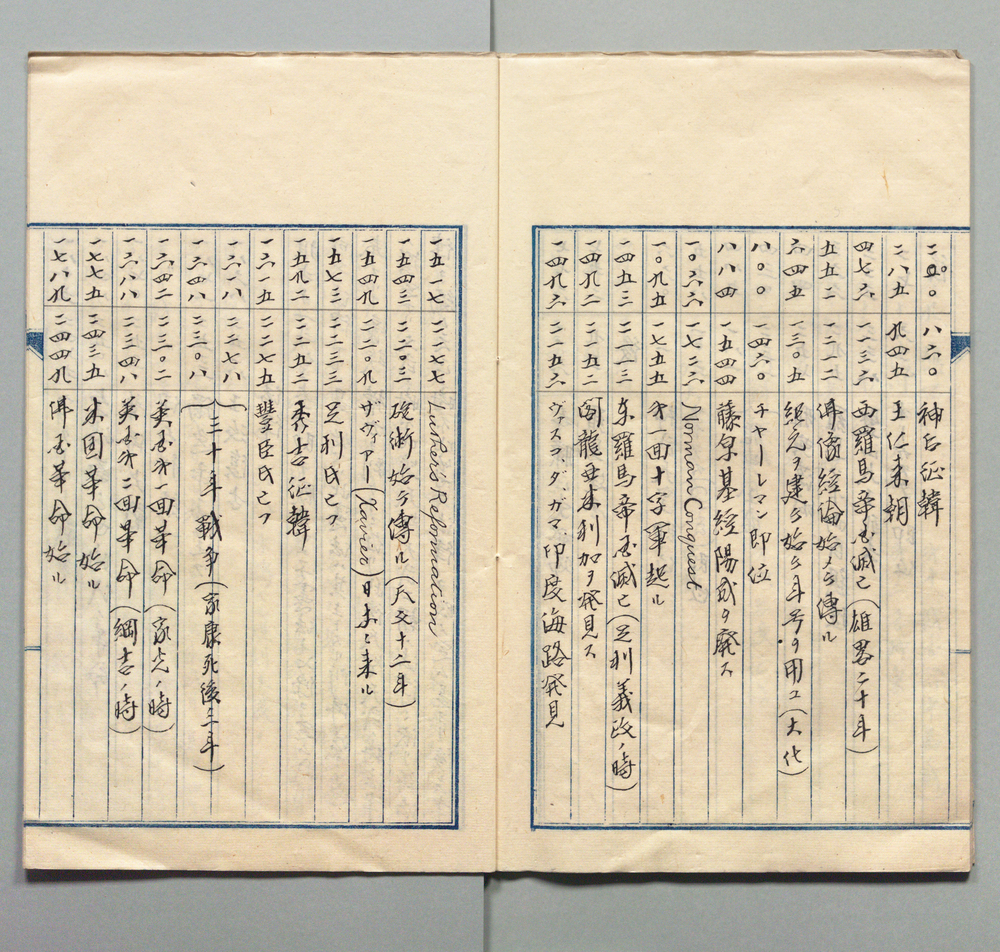 二〇〇 八六〇 神后征韓
二八五 九四五 王仁来朝
四七六 一一三六 西羅馬帝国滅亡(雄畧二十年)
五五二 一二一二 佛像経論始メテ傳ル
六四五 一三〇五 紀元ヲ建テ始テ年号ヲ用ユ(大化)
八〇〇 一四六〇 チャーレマン即位
八八四 一五四四 藤原基経陽成ヲ廃ス
一〇六六 一七二六 Norman Conquest
一〇九五 一七五五 第一回十字軍起ル
一四五三 二一一三 东羅馬帝国滅亡(足利義政ノ時)
一四九二 二一五二 閣龍亜米利加ヲ発見ス
一四九六 二一五六 ヴァスコ、ダ、ガマ、印度海路発見
一五一七 二一七七 Luther's Reformation
一五四三 二二〇三 砲術始テ傳ル(天文十二年)
一五四九 二二〇九 ザヴィアー(Xavier)日本ニ来ル
一五七三 二二三三 足利氏亡フ
一五九二 二二五二 秀吉征韓
一六一五 二二七五 豐臣氏亡フ
一六一八 二二七八
一六四八 二三〇八 三十年戦争(家康死後二年)
一六四二 二三〇二 英国第一回革命(家光ノ時)
一六八八 二三四八 英国第二回革命(綱吉ノ時)
一七七五 二四三五 米国革命始ル
一七八九 二四四九 佛国革命始ル